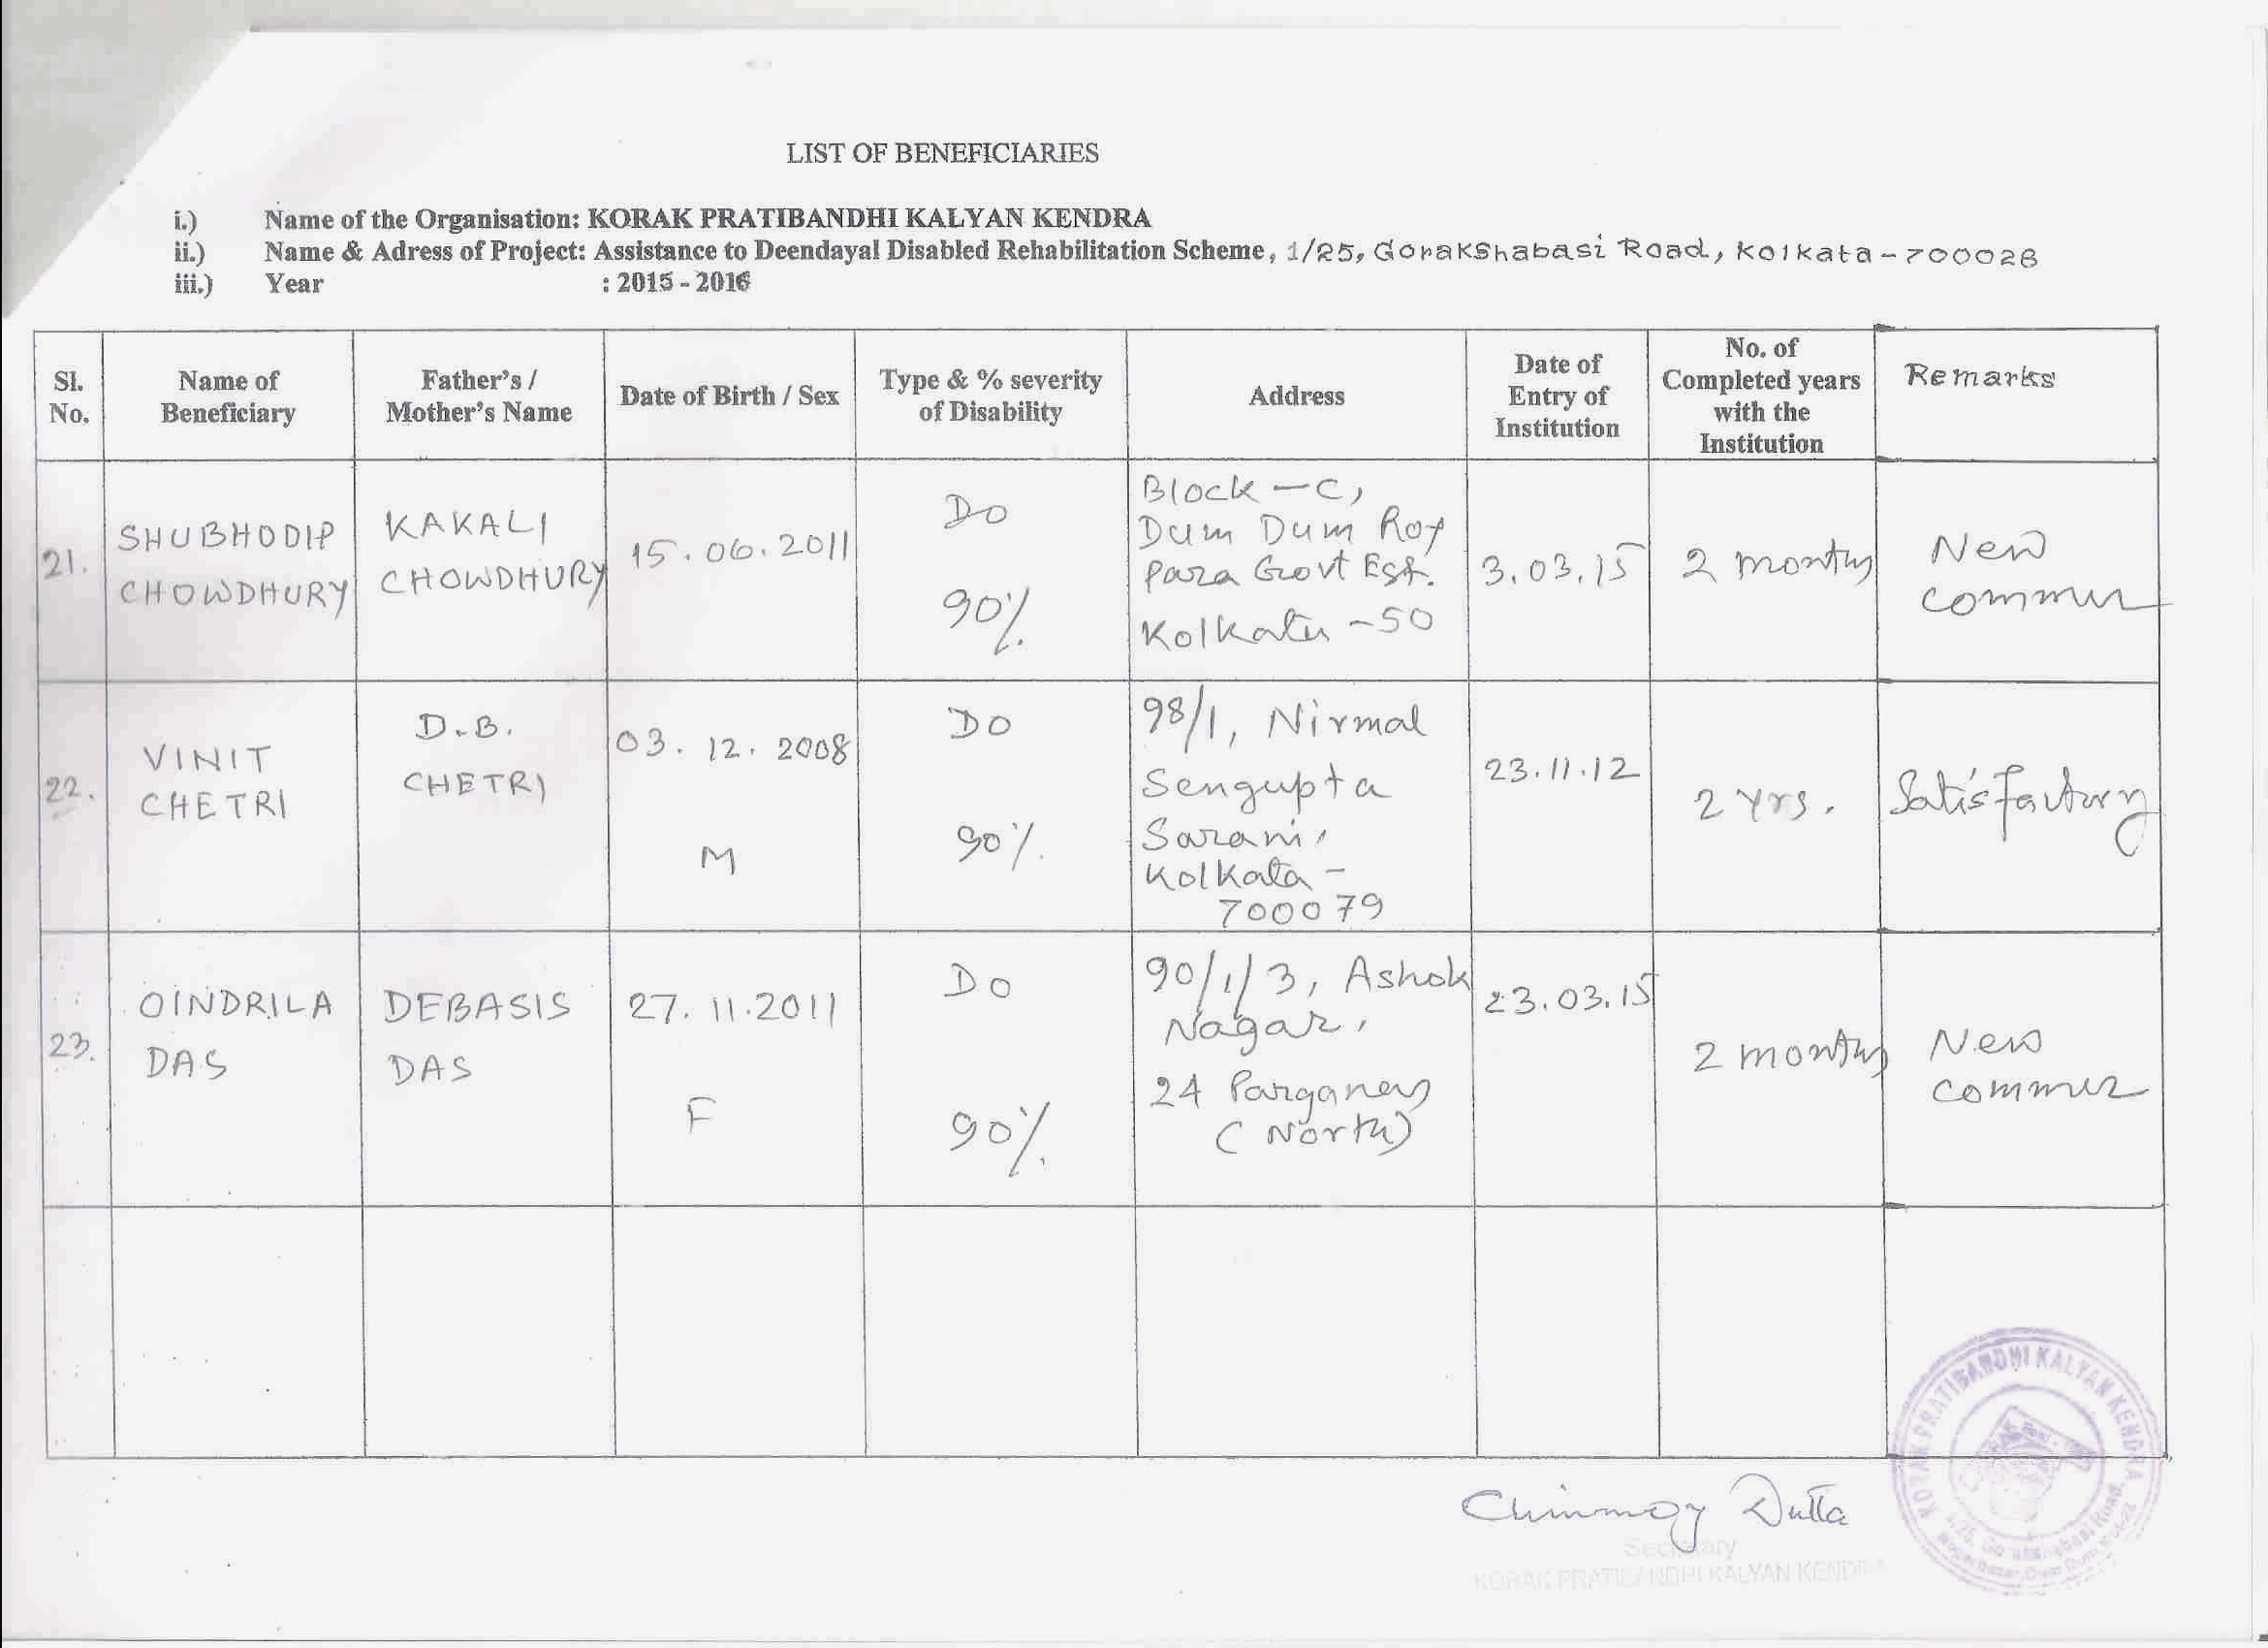 LIST OF BENEFICIARIES
i.) Name of the Organisation: KORAK PRATIBANDHI KALYAN KENDRA
ii.) Name & Adress of Project: Assistance to Deendayal Disabled Rehabilitation Scheme, 1/25, Gorakshabasi Road, Kolkata - 700028
iii.) Year : 2015 - 2016
Sl.
No.
Name of
Beneficiary
Father's /
Mother's Name
Date of Birth / Sex
Type & % severity
of Disability
Address
Date of
Entry of
Institution
No. of
Completed years
with the
Institution
Remarks
21.
SHUBHODIP
CHOWDHURY
KAKALI
CHOWDHURY
15.06.2011
Do
90%
Block - C,
Dum Dum Roy
Para Govt Est.
Kolkata - 50
3.03.15
2 months
New
commer
22.
VINIT
CHETRI
D.B.
CHETRI
03.12.2008
M
DO
90%
98/1, Nirmal
Sengupta
Sarani,
Kolkata -
700079
23.11.12
2 Yrs.
Satisfactory
23.
OINDRILA
DAS
DEBASIS
DAS
27.11.2011
F
Do
90%
90/1/3, Ashok
Nagar,
24 Parganas
(North)
23.03.15
2 months
New
commer
Chinmoy Dutta
Secretary
KORAK PRATIBANDHI KALYAN KENDRA
KORAK PRATIBANDHI KALYAN KENDRA